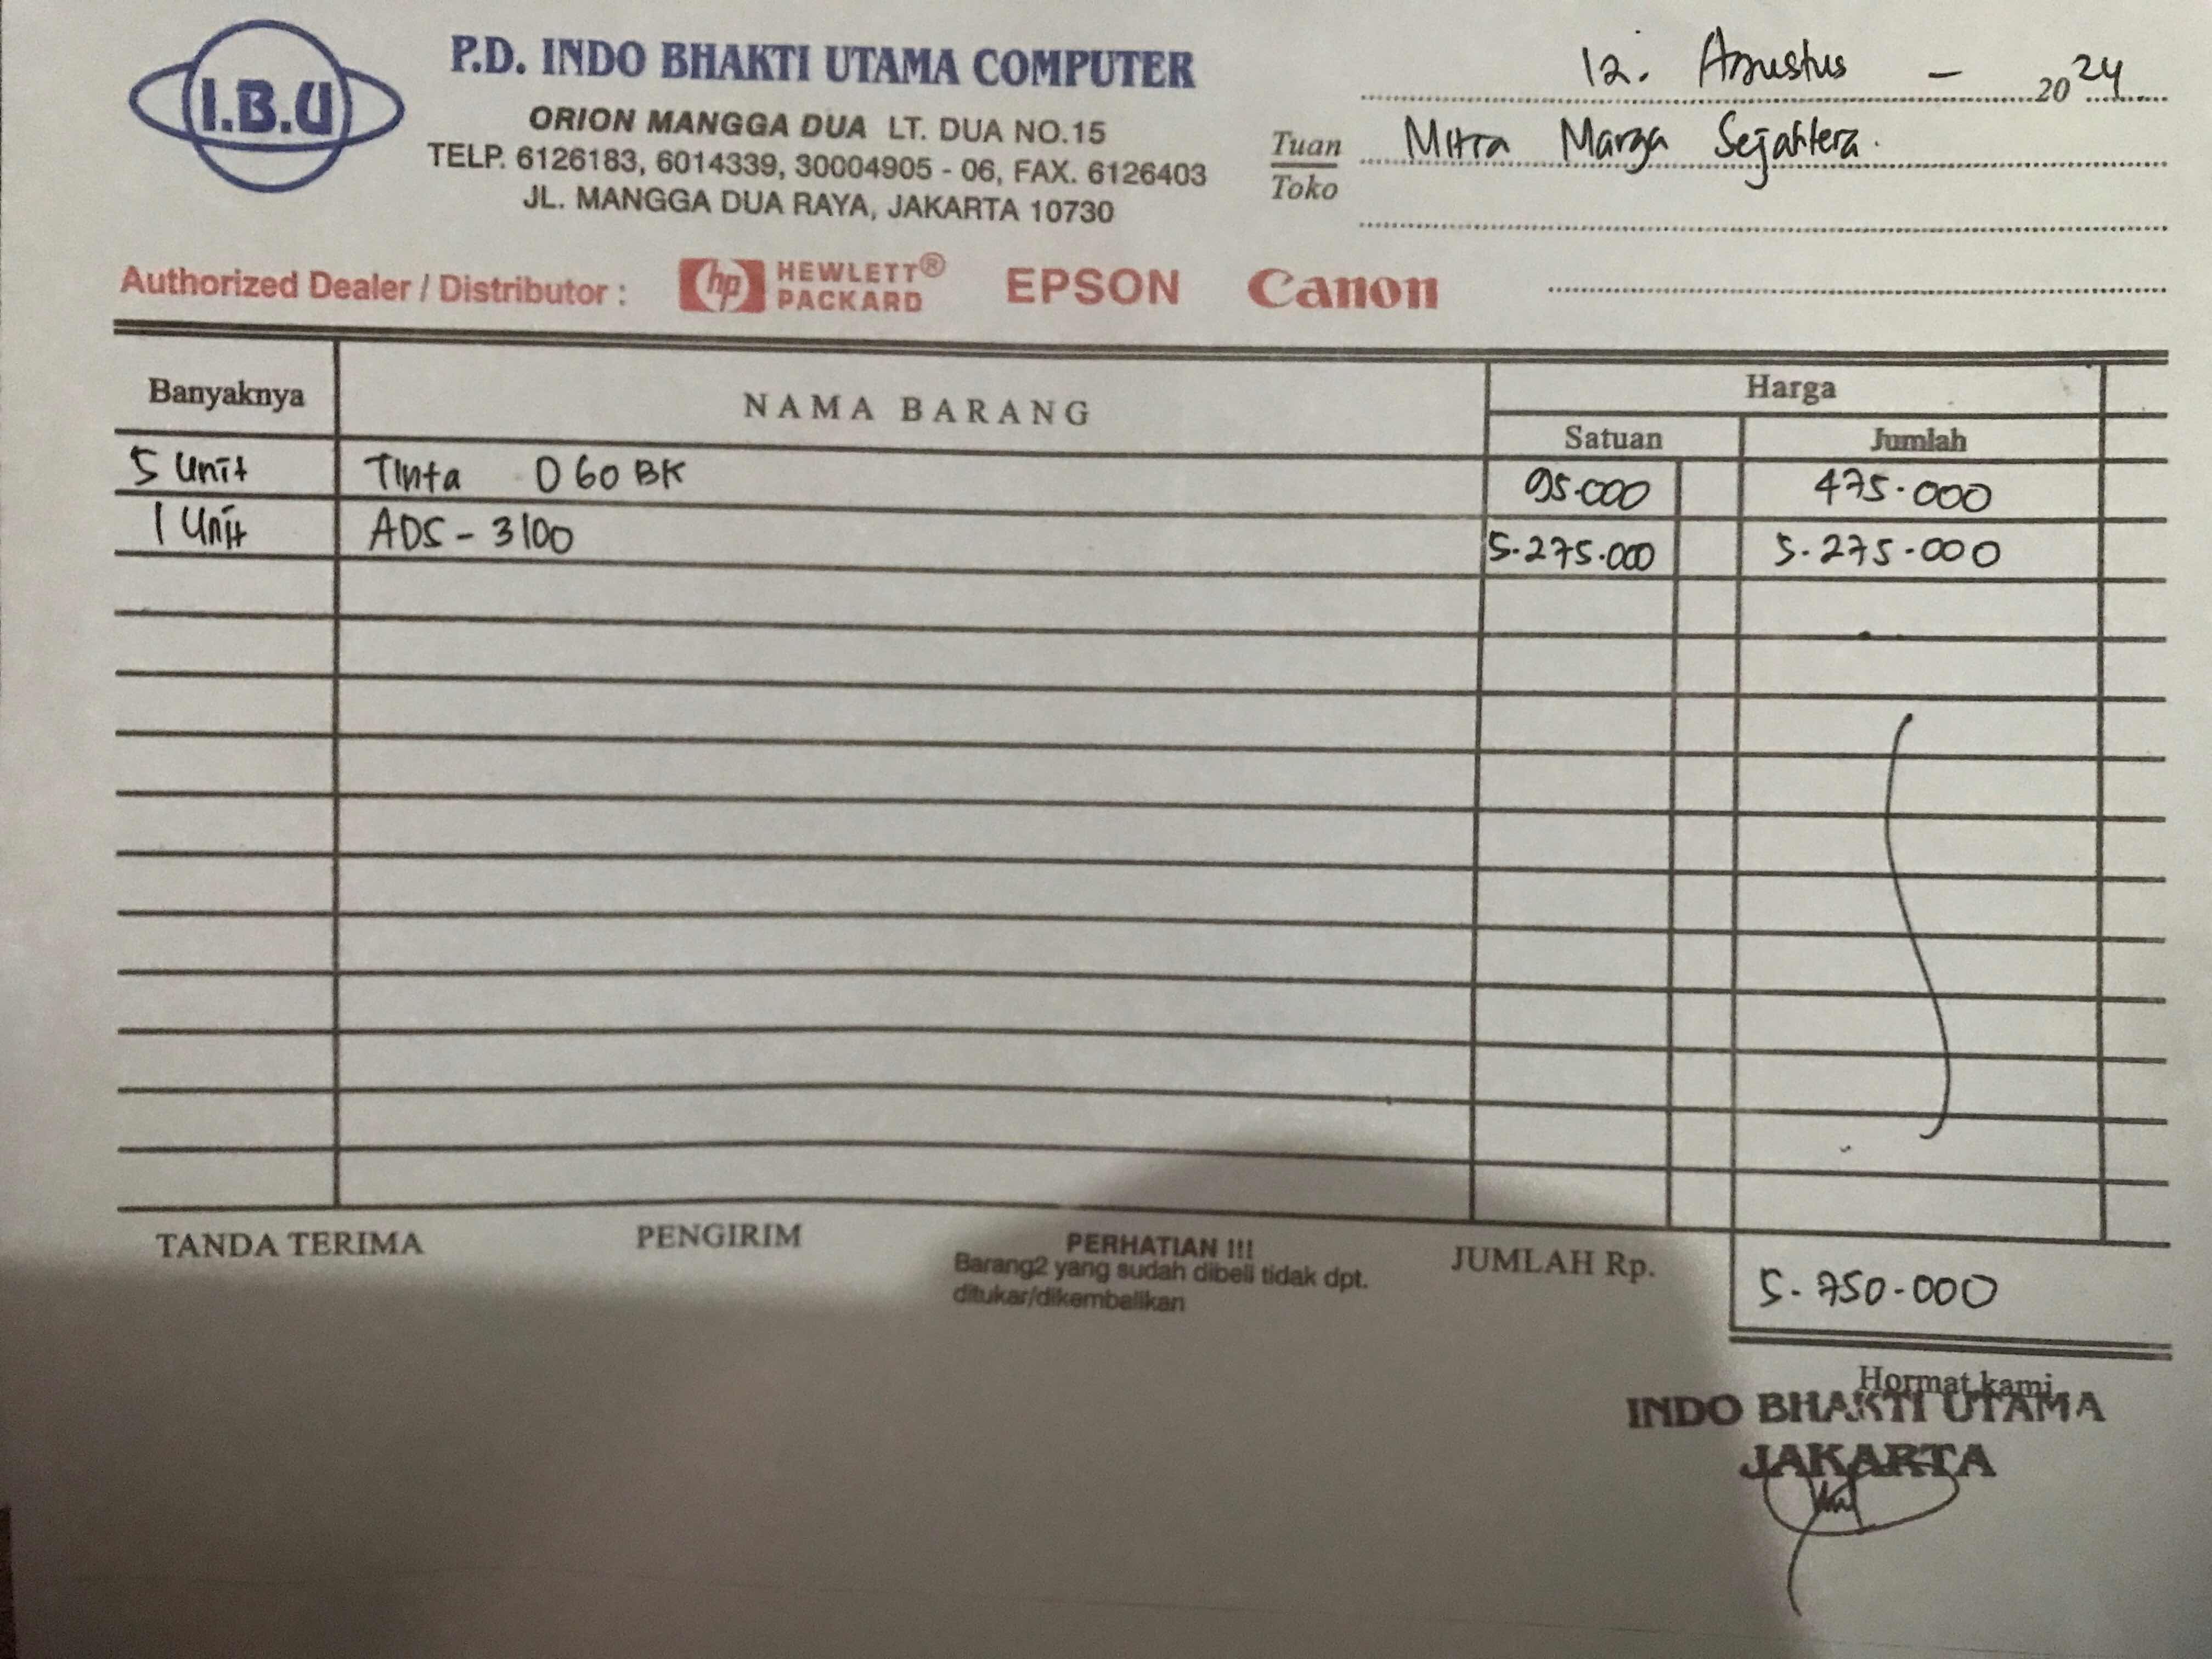 I.B.U
P.D. INDO BHAKTI UTAMA COMPUTER
ORION MANGGA DUA LT. DUA NO.15
TELP. 6126183, 6014339, 30004905 - 06, FAX. 6126403
JL. MANGGA DUA RAYA, JAKARTA 10730
12. Agustus - 2024
Tuan Mitra Marga Sejahtera.
Toko
Authorized Dealer / Distributor : hp HEWLETT® PACKARD EPSON Canon
Banyaknya NAMA BARANG Harga
Satuan Jumlah
5 Unit Tinta D60 BK 95.000 475.000
1 Unit ADS - 3100 5.275.000 5.275.000
TANDA TERIMA PENGIRIM PERHATIAN !!! JUMLAH Rp. 5.750.000
Barang2 yang sudah dibeli tidak dpt.
ditukar/dikembalikan
Hormat kami,
INDO BHAKTI UTAMA
JAKARTA